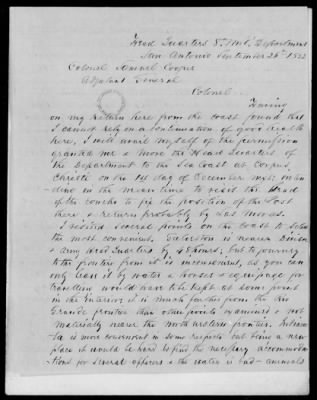 Head Quarters 8th Mil. Department
San Antonio September 26th 1852
Colonel Samuel Cooper
Adjutant General
Colonel
Having
on my return here from the coast found that
I cannot rely on a continuation of good health
here, I will avail myself of the permission
granted me & move the Head Quarters of
the Department to the Sea Coast at Corpus
Christi on the 1st day of December next
in the mean time to visit the Head
of the Concho to fix the position of the Post
there & return probably by Las Moras.
I visited several points on the coast to select
the most convenient, Galveston is nearer
Army Head Quarters by hours, but to journey
to the frontier from it is inconvenient, as you can
only leave it by water & horses & equipage for
travelling would have to be kept at some point
in the Interior. It is much farther from the Rio
Grande frontier than other points examined & not
materially nearer the north western frontier.
la is more convenient in some respects but being a new
place it would be hard to find the necessary accommoda-
tions for several officers & the water is bad - animals